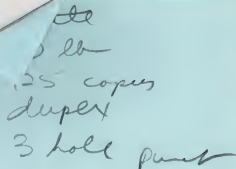 lb
25 copies
duplex
3 hole punch